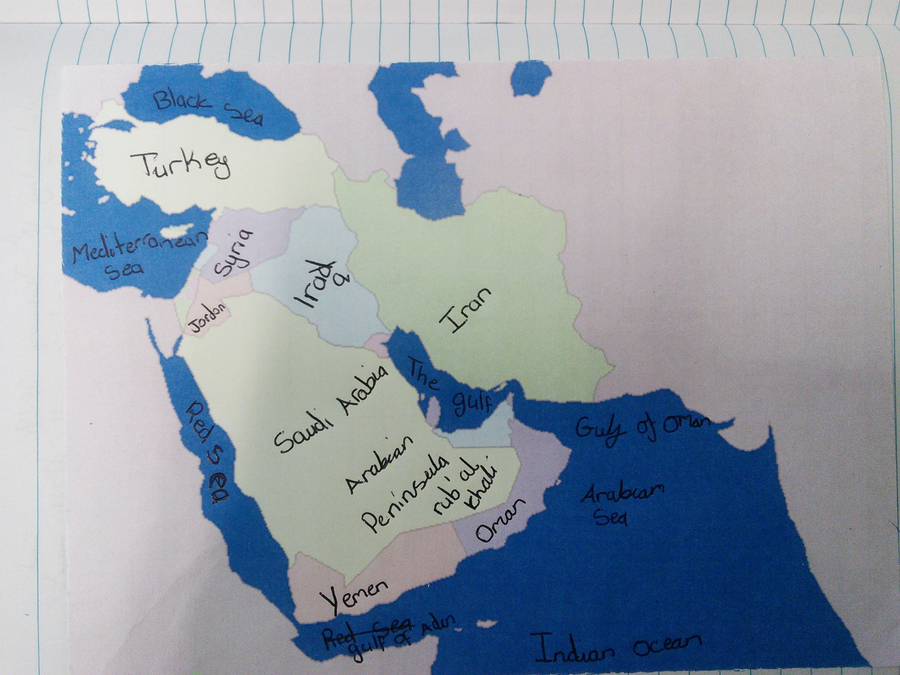 Black Sea
Turkey
Mediterranean
Sea
Syria
Irad
q
Jordon
Iran
The
gulf
Saudi Arabia
Gulf of Oman
Red Sea
Arabian
Peninsula
rub'al
khali
Arabian
Sea
Oman
Yemen
Red Sea
gulf of Aden
Indian Ocean